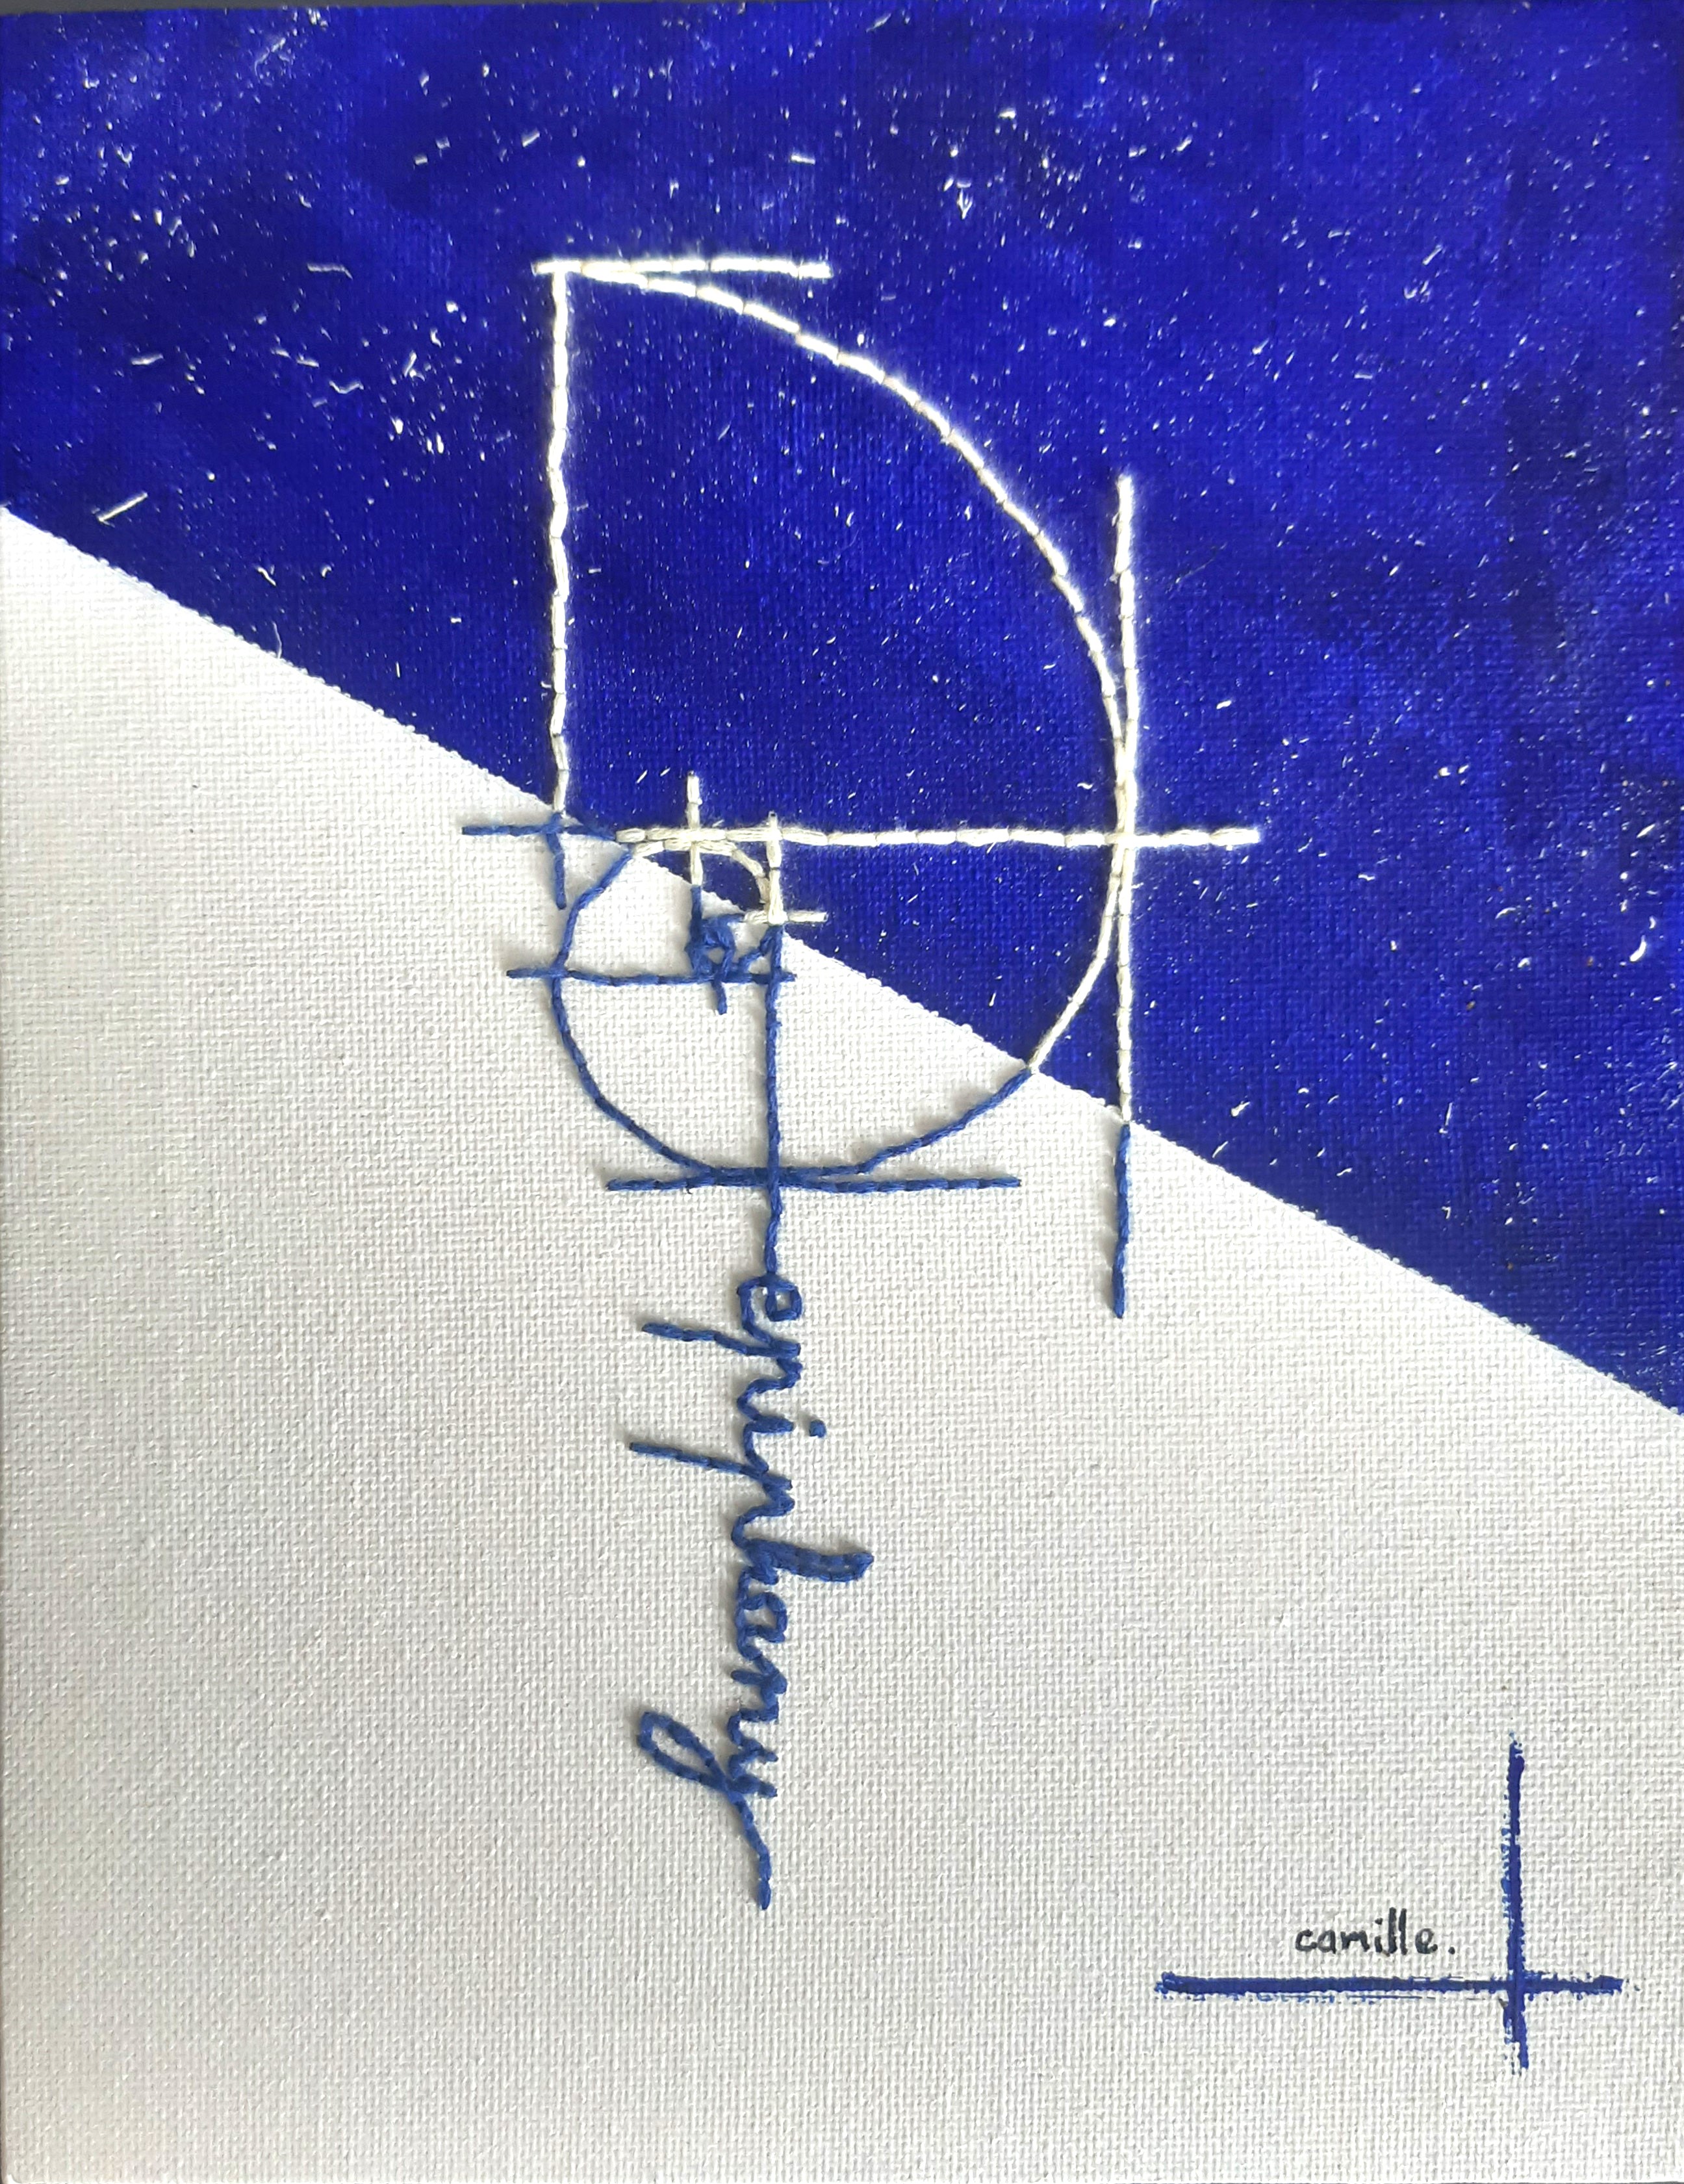 epiphany
camille.